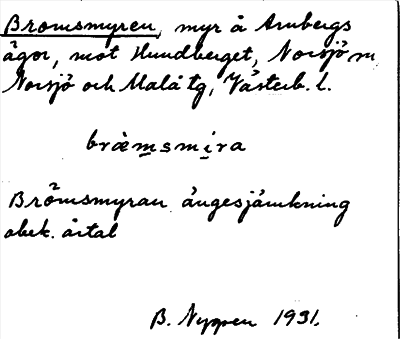 Bromsmyren, myr å Arnbergs
ägor, mot Hundberget, Norsjö sn
Norsjö och Malå tg, Västerb. l.
bræ̀msmira
Brömsmyran ängesjämkning
obek. årtal
B. Nygren 1931.